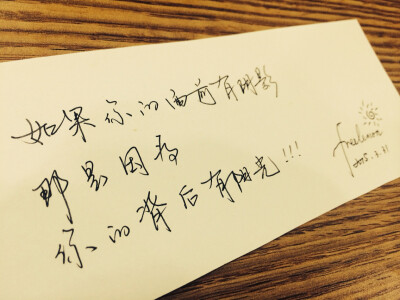 如果你的面前有阴影
那是因为
你的背后有阳光!!!